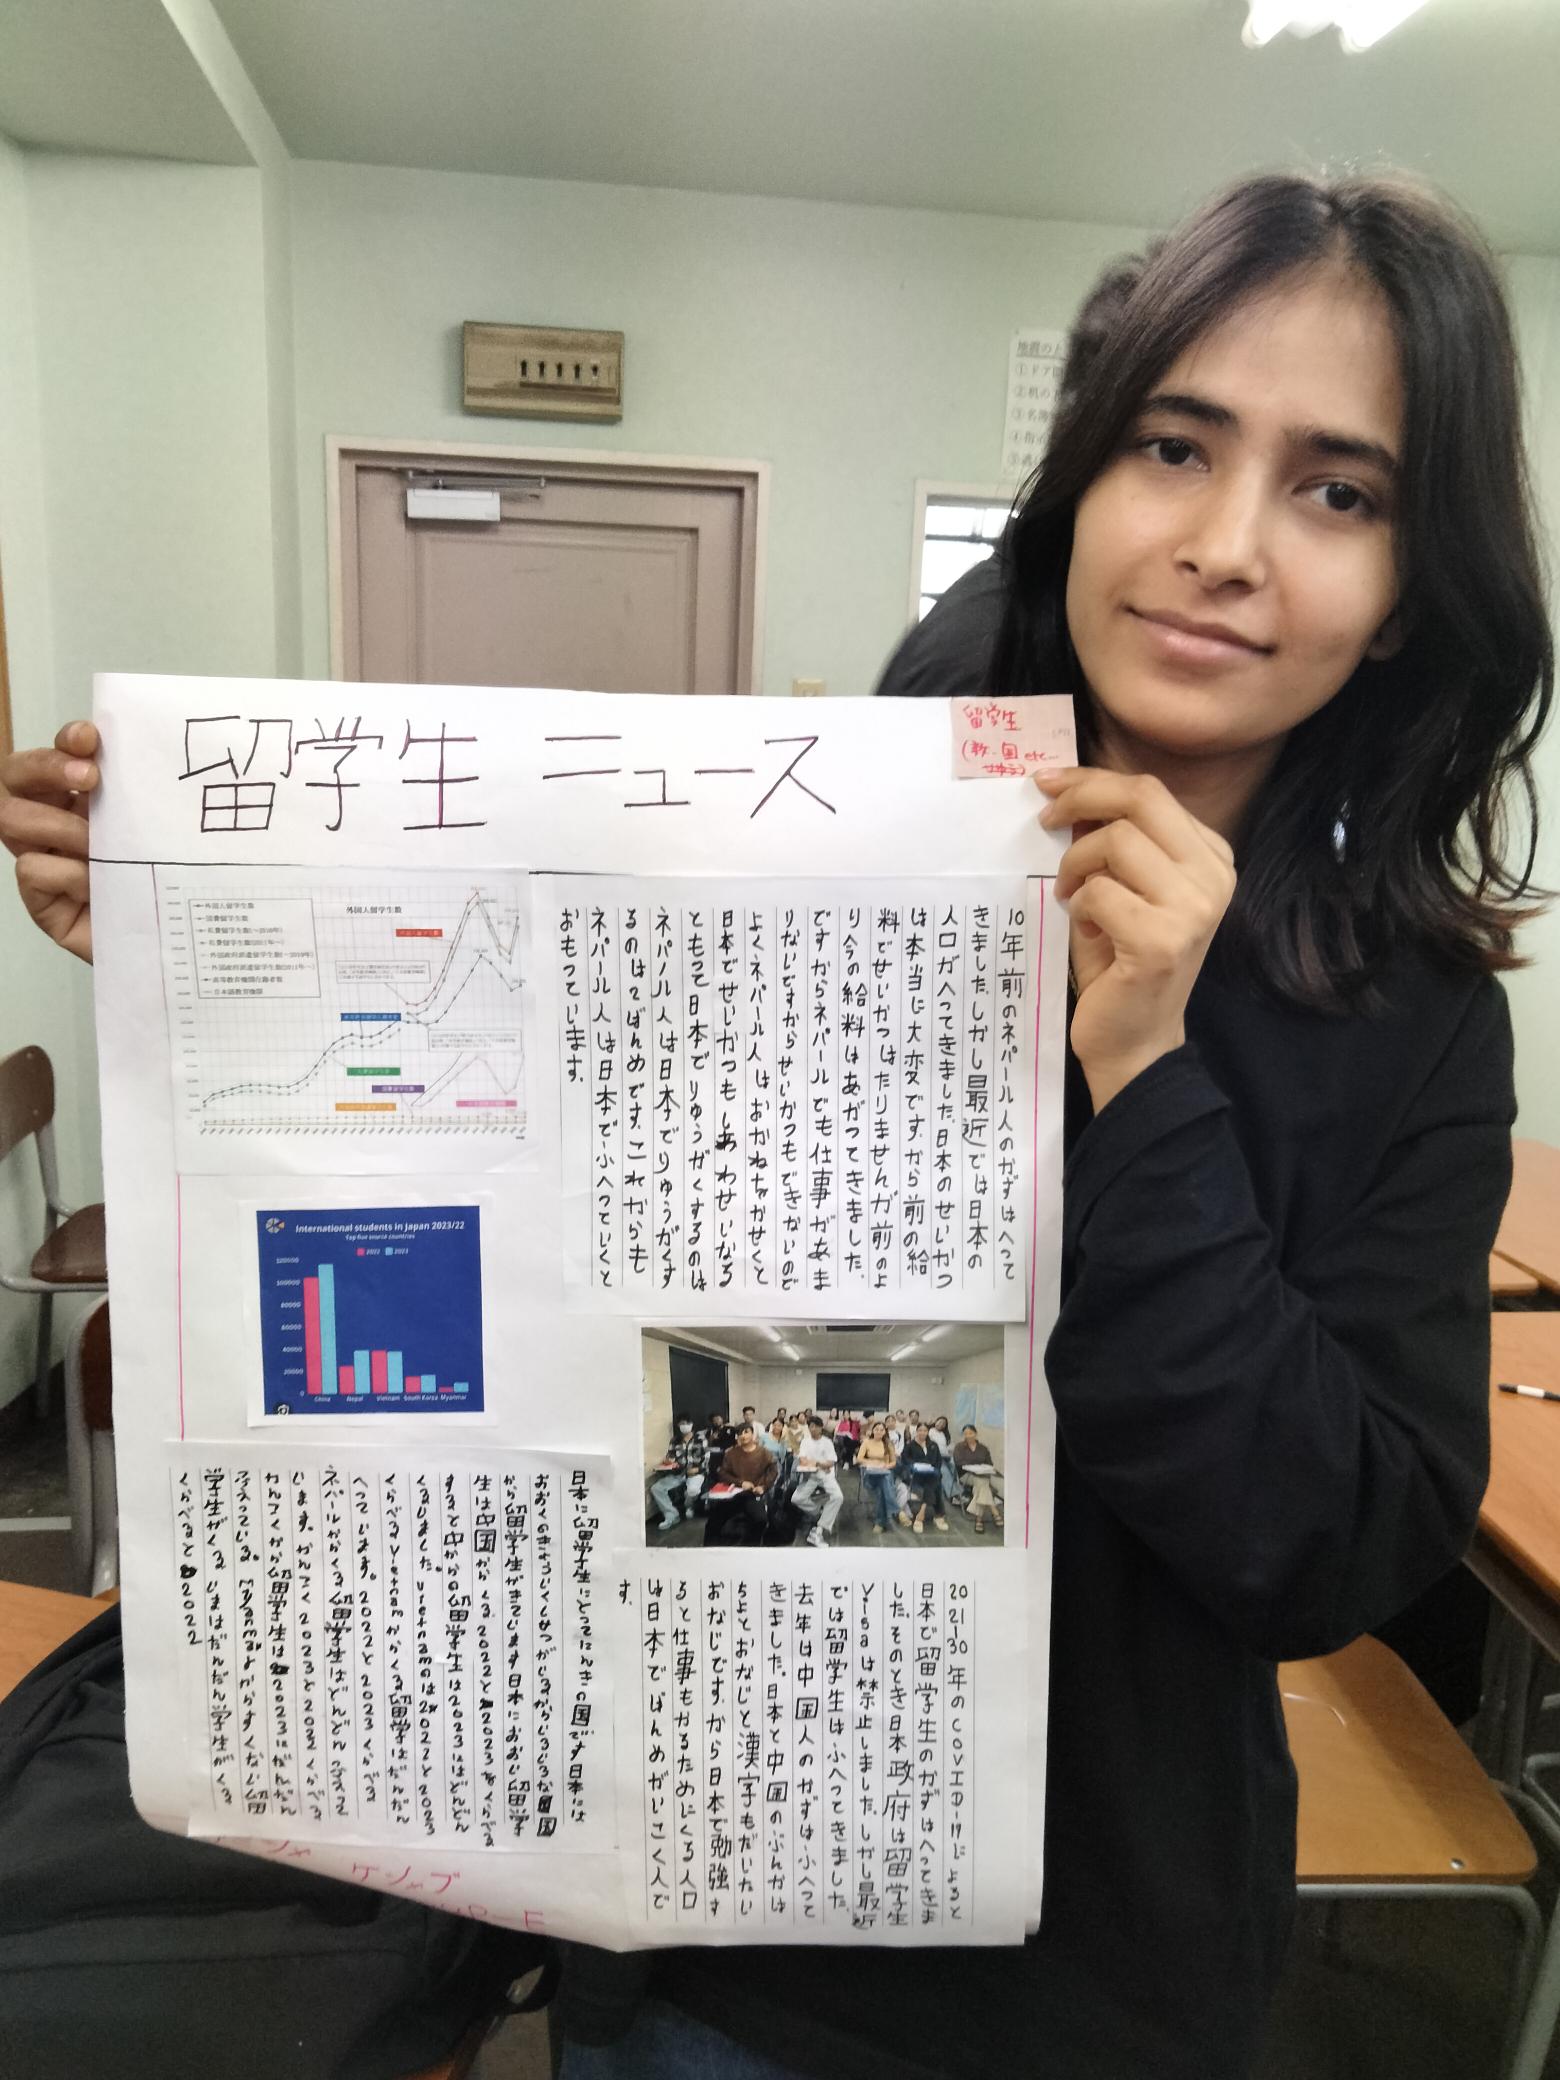 留学生ニュース
留学生
(数、国 etc...
外国人留学生数
外国人留学生数
国費留学生数
私費留学生数(~2010年)
私費留学生数(2011年~)
外国政府派遣留学生数(~2010年)
外国政府派遣留学生数(2011年~)
高等教育機関在籍者数
日本語教育機関
10年前のネパール人のかずはへって
きました。しかし最近では日本の
人口がへってきました。日本のせいかつ
は本当に大変です。から前の給
料でせいかつはたりませんが前のよ
り今の給料はあがってきました。
ですからネパールでも仕事があま
りないですからせいかつもできないので
よくネパール人はおかねをかせくと
日本でせいかつもしあわせいなる
ともって日本でりゅうがくするのは
ネパル人は日本でりゅうがくす
るのは2ばんめです。これからも
ネパール人は日本で小へっていくと
おもっています。
International students in Japan 2023/22
Top five source countries
2022 2023
120000
100000
80000
60000
40000
20000
0
China Nepal Vietnam South Korea Myanmar
2021-30年のCOVID-19によると
日本で留学生のかずはへってきま
した。そのとき日本政府は留学生
Visaは禁止しました。しかし最近
では留学生は小へってきました。
去年は中国人のかずは小へって
きました。日本と中国のぶんかは
ちょとおなじと漢字もだいたい
おなじです。から日本で勉強す
ると仕事もやるためにくる人口
は日本でばんめがいこく人で
す。
日本に留学生にとってにんきの国です日本には
から留学生がきています日本におおい留学
生は中国からくる2022と2023をくらべる
すると中からの留学生は2023はどんどん
くるしました。Vietnamは2022と2023
くらべるVietnamからくる留学はだんだん
へっています。2022と2023くらべる
ネパールからくる留学生はどんどん
います。かんこく2023と2022くらべる
かんこくから留学生は2023にだんだん
ふえっている。Myanmarからすくない留
学生がくるいまはだんだん学生がくる
くらべると2022
地震の